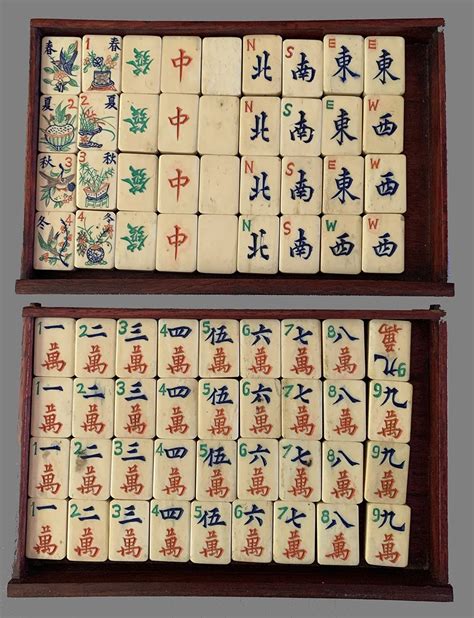 春 1 春 發 中 N 北 S 南 E 東 E 東
夏 2 2 夏 發 中 N 北 S 南 E 東 W 西
秋 3 3 秋 發 中 N 北 S 南 E 東 W 西
冬 4 4 冬 發 中 N 北 S 南 W 西 W 西
1一 2二 3三 4四 5伍 6六 7七 8八 9九
萬 萬 萬 萬 萬 萬 萬 萬 萬
1一 2二 3三 4四 5伍 6六 7七 8八 9九
萬 萬 萬 萬 萬 萬 萬 萬 萬
1一 2二 3三 4四 5伍 6六 7七 8八 9九
萬 萬 萬 萬 萬 萬 萬 萬 萬
1一 2二 3三 4四 5伍 6六 7七 8八 9九
萬 萬 萬 萬 萬 萬 萬 萬 萬